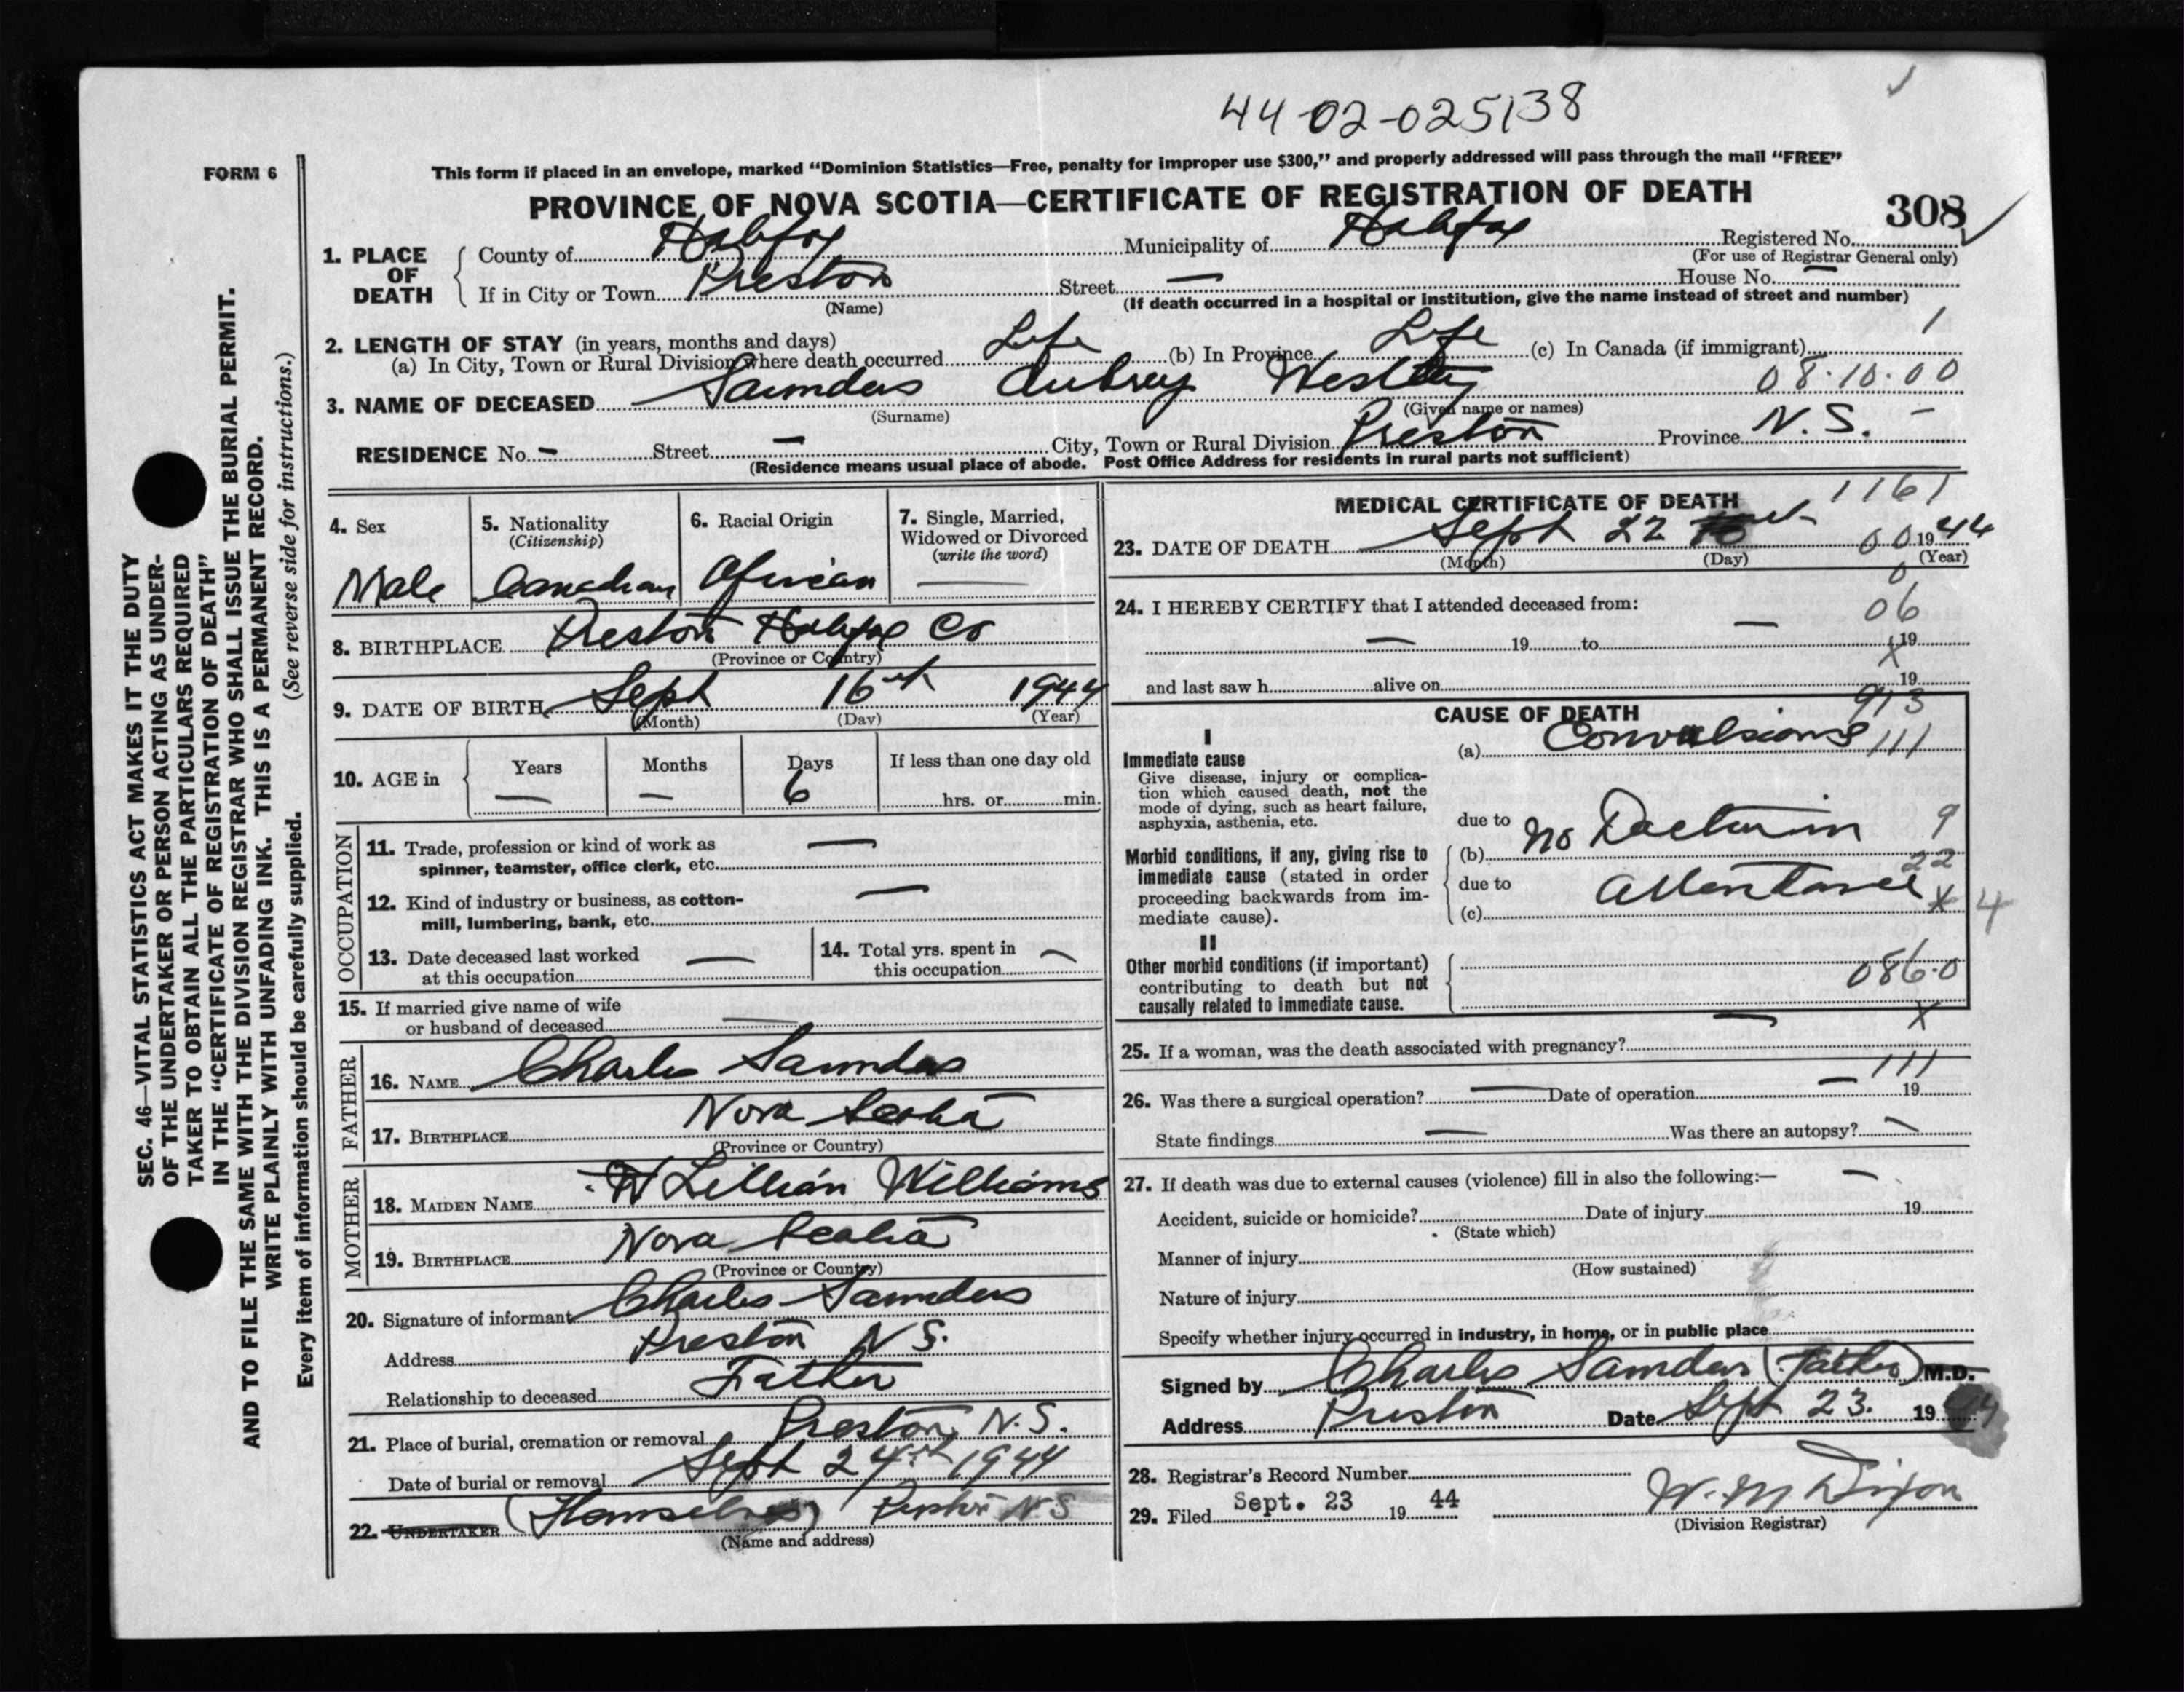 44-02-025138
FORM 6
This form if placed in an envelope, marked "Dominion Statistics—Free, penalty for improper use $300," and properly addressed will pass through the mail "FREE"
PROVINCE OF NOVA SCOTIA—CERTIFICATE OF REGISTRATION OF DEATH
308
1. PLACE OF DEATH
County of Halifax Municipality of Halifax Registered No.
(For use of Registrar General only)
If in City or Town Preston Street — House No. —
(Name) (If death occurred in a hospital or institution, give the name instead of street and number)
2. LENGTH OF STAY (in years, months and days) 1
(a) In City, Town or Rural Division where death occurred Life (b) In Province Life (c) In Canada (if immigrant)
08.10.00
3. NAME OF DECEASED Saunders Aubrey Westley
(Surname) (Given name or names)
RESIDENCE No. — Street — City, Town or Rural Division Preston Province N.S. —
(Residence means usual place of abode. Post Office Address for residents in rural parts not sufficient)
4. Sex Male
5. Nationality (Citizenship) Canadian
6. Racial Origin African
7. Single, Married, Widowed or Divorced (write the word) —
8. BIRTHPLACE Preston Halifax Co
(Province or Country)
9. DATE OF BIRTH Sept 16th 1944
(Month) (Day) (Year)
10. AGE in Years — Months — Days 6 If less than one day old
hrs. or min.
OCCUPATION
11. Trade, profession or kind of work as spinner, teamster, office clerk, etc. —
12. Kind of industry or business, as cotton-mill, lumbering, bank, etc. —
13. Date deceased last worked at this occupation —
14. Total yrs. spent in this occupation —
15. If married give name of wife or husband of deceased —
FATHER
16. NAME Charles Saunders
17. BIRTHPLACE Nova Scotia
(Province or Country)
MOTHER
18. MAIDEN NAME Lillian Williams
19. BIRTHPLACE Nova Scotia
(Province or Country)
20. Signature of informant Charles Saunders
Address Preston N S.
Relationship to deceased Father
21. Place of burial, cremation or removal Preston, N.S.
Date of burial or removal Sept 24th 1944
22. UNDERTAKER (Themselves) Preston N.S
(Name and address)
MEDICAL CERTIFICATE OF DEATH
1161
23. DATE OF DEATH Sept 22 00 1944
(Month) (Day) (Year)
0
24. I HEREBY CERTIFY that I attended deceased from: 06
— 19 to — 19
X
and last saw h alive on 19
CAUSE OF DEATH 913
I
Immediate cause (a) Convulsions 111
Give disease, injury or complica-
tion which caused death, not the
mode of dying, such as heart failure,
asphyxia, asthenia, etc.
due to
Morbid conditions, if any, giving rise to
immediate cause (stated in order
proceeding backwards from im-
mediate cause).
(b) no 9
22
due to
(c) X 4
II
Other morbid conditions (if important)
contributing to death but not
causally related to immediate cause.
086.0
X
25. If a woman, was the death associated with pregnancy? —
111
26. Was there a surgical operation? — Date of operation — 19
State findings — Was there an autopsy? —
27. If death was due to external causes (violence) fill in also the following:— —
Accident, suicide or homicide? Date of injury 19
(State which)
Manner of injury
(How sustained)
Nature of injury
Specify whether injury occurred in industry, in home, or in public place
Signed by Charles Saunders (Father) M.D.
Address Preston Date Sept 23. 1944
28. Registrar's Record Number
29. Filed Sept. 23 19 44 W. M Dixon
(Division Registrar)
SEC. 46—VITAL STATISTICS ACT MAKES IT THE DUTY
OF THE UNDERTAKER OR PERSON ACTING AS UNDER-
TAKER TO OBTAIN ALL THE PARTICULARS REQUIRED
IN THE "CERTIFICATE OF REGISTRATION OF DEATH"
AND TO FILE THE SAME WITH THE DIVISION REGISTRAR WHO SHALL ISSUE THE BURIAL PERMIT.
WRITE PLAINLY WITH UNFADING INK. THIS IS A PERMANENT RECORD.
Every item of information should be carefully supplied. (See reverse side for instructions.)